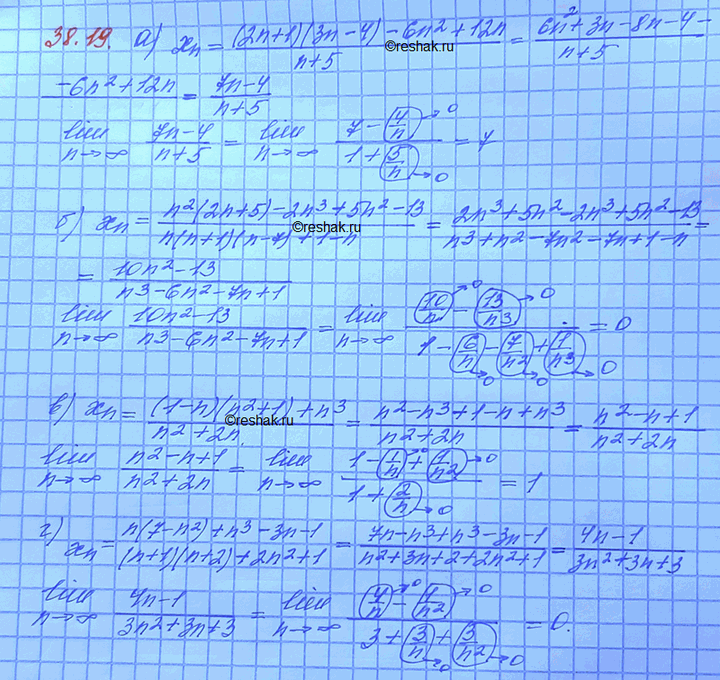 38.19. а) xₙ = ((2n+1)(3n-4)-6n²+12n)/(n+5) = (6n²+3n-8n-4-
-6n²+12n)/(n+5) = (7n-4)/(n+5)
lim n→∞ (7n-4)/(n+5) = lim n→∞ (7-(4/n)→0)/(1+(5/n)→0) = 7
б) xₙ = (n²(2n+5)-2n³+5n²-13)/(n(n+1)(n-7)+1-n) = (2n³+5n²-2n³+5n²-13)/(n³+n²-7n²-7n+1-n) =
= (10n²-13)/(n3-6n²-7n+1)
lim n→∞ (10n²-13)/(n3-6n²-7n+1) = lim n→∞ ((10/n)→0-(13/n3)→0)/(1-(6/n)→0-(7/n²)→0+(1/n3)→0) = 0
в) xₙ = ((1-n)(n²+1)+n³)/(n²+2n) = (n²-n³+1-n+n³)/(n²+2n) = (n²-n+1)/(n²+2n)
lim n→∞ (n²-n+1)/(n²+2n) = lim n→∞ (1-(1/n)→0+(1/n²)→0)/(1+(2/n)→0) = 1
г) xₙ = (n(7-n²)+n³-3n-1)/((n+1)(n+2)+2n²+1) = (7n-n³+n³-3n-1)/(n²+3n+2+2n²+1) = (4n-1)/(3n²+3n+3)
lim n→∞ (4n-1)/(3n²+3n+3) = lim n→∞ ((4/n)→0-(1/n²)→0)/(3+(3/n)→0+(3/n²)→0) = 0.
©reshak.ru
©reshak.ru
©reshak.ru